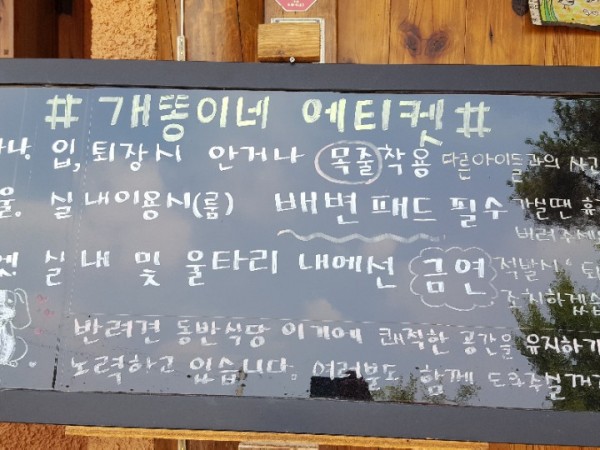 # 개똥이네 에티켓 #
나. 입, 퇴장시 안거나 목줄착용 다른아이들과의 사간
둘. 실내이용시(룸) 배변패드 필수 가실땐 휴
버려주세
엣 실내 및 울타리 내에선 금연 적발시 퇴
조치하겠습
반려견 동반식당 이기에 쾌적한 공간을 유지하기
노력하고 있습니다. 여러분도 함께 도와주실거